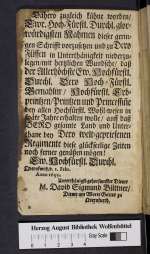 Dahero zugleich kühne worden/
Ewr. Hoch-Fürstl. Durchl. glor-
würdigsten Nahmen dieser gerin-
gen Schrift vorzusetzen und zu Dero
Füssen in Unterthänigkeit niederzu-
legen mit hertzlichen Wundsche/ daß
der Allerhöchste Ew. Hochfürstl.
Durchl. Dero Hoch-Fürstl.
Gemahlin/ Hochfürstl. Erb-
printzen/ Printzen und Princeßinnen
bey allen Hochfürstl. Wohlseyn in
späte Jahre erhalten wolle/ auff daß
Dero gesamte Land und Unter-
thane bey Dero weit-gepriesenen
Regimente diese glückseelige Zeiten
noch ferner geniessen mögen.
Ew. Hochfürstl. Durchl.
1. Febr.
Anno 1692.
Unterthänigst-gehorsamster Diener
M. David Sigmund Büttner/
Diener am Wort Gottes zu
Querfurth.
Herzog August Bibliothek Wolfenbüttel